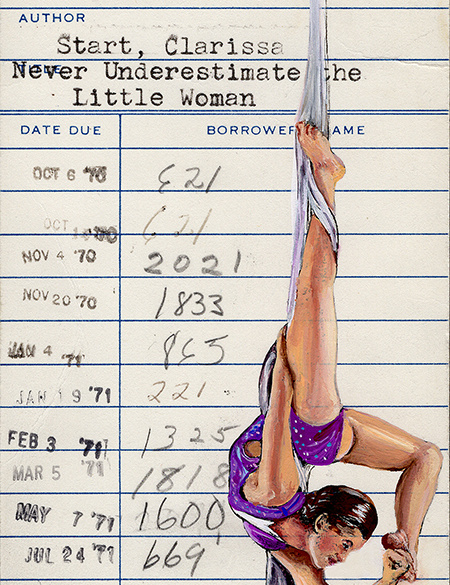 AUTHOR
Start, Clarissa
TITLE
Never Underestimate the
Little Woman
DATE DUE BORROWER'S NAME
OCT 6 '70 621
OCT '70 621
NOV 4 '70 2021
NOV 20 '70 1833
JAN 4 '71 865
JAN 19 '71 221
FEB 3 '71 1325
MAR 5 '71 1818
MAY 7 '71 1600
JUL 24 '71 669